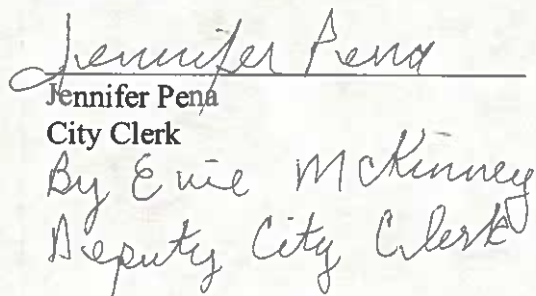 Jennifer Pena
Jennifer Pena
City Clerk
By Evie McKinney
Deputy City Clerk